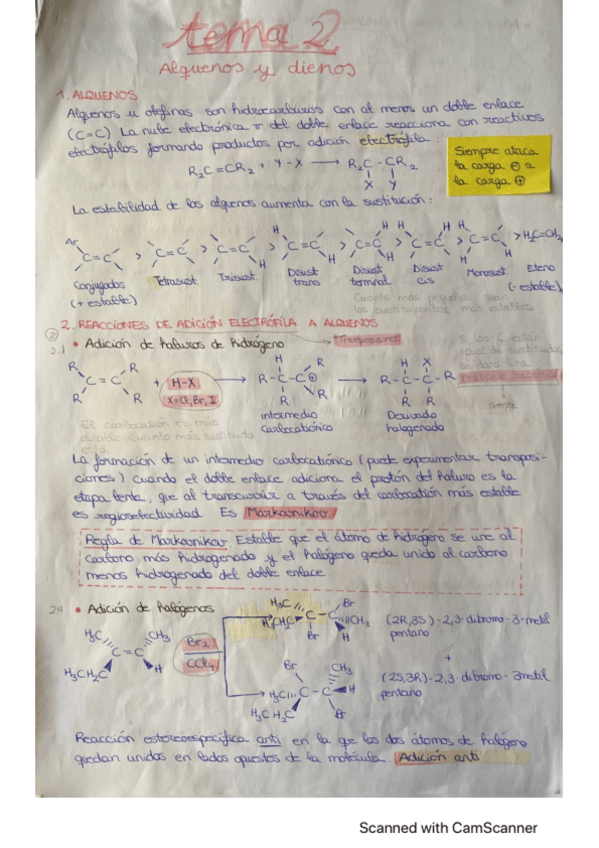 tema 2
Alquenos y dienos
1. ALQUENOS
Alquenos u olefinas son hidrocarburos con al menos un doble enlace
(C=C) La nube electrónica π del doble enlace reacciona con reactivos
electrófilos formando productos por adición electrófila.
R2C=CR2 + Y-X → R2C-CR2
X Y
Siempre ataca
la carga ⊖ a
la carga ⊕
La estabilidad de los alquenos aumenta con la sustitución:
Ar C=C > C=C > C=C H > H C=C H > C=C H H > H C=C H > C=C H H H > H2C=CH2
Conjugados
(+ estable)
Tetrasust.
Trisust.
Disust
trans
Disust
terminal
Disust
cis
Monosust
Eteno
(- estable)
Cuanto más pequeños sean
los sustituyentes, más estables
2. REACCIONES DE ADICIÓN ELECTRÓFILA A ALQUENOS
2.1 • Adición de haluros de hidrógeno
Transposiciones
Si los C están
igual de sustituidos
se dará una
mezcla racémica
siempre
R R C=C R R + H-X → R-C-C⊕ H R R R → R-C-C-R H X R R
X=Cl, Br, I
intermedio
carbocatiónico
Derivado
halogenado
El carbocatión es más
estable cuanto más sustituido
está
La formación de un intermedio carbocatiónico (puede experimentar transposi-
ciones) cuando el doble enlace adiciona el protón del haluro es la
etapa lenta, que al transcurrir a través del carbocatión más estable
es regioselectividad. Es Markovnikov
Regla de Markovnikov Estable que el átomo de hidrógeno se une al
carbono más hidrogenado y el halógeno queda unido al carbono
menos hidrogenado del doble enlace.
2.4 • Adición de halógenos
H3C CH3 C=C H3CH2C H
Br2
CCl4
H3C Br C-C H3CH2C CH3 Br H
(2R,3S)-2,3-dibromo-3-metil
pentano
+
Br CH3 H3C C-C H H3CH2C Br
(2S,3R)-2,3-dibromo-3metil
pentano
Reacción estereoespecífica anti en la que los dos átomos de halógeno
quedan unidos en lados opuestos de la molécula. Adición anti
Scanned with CamScanner